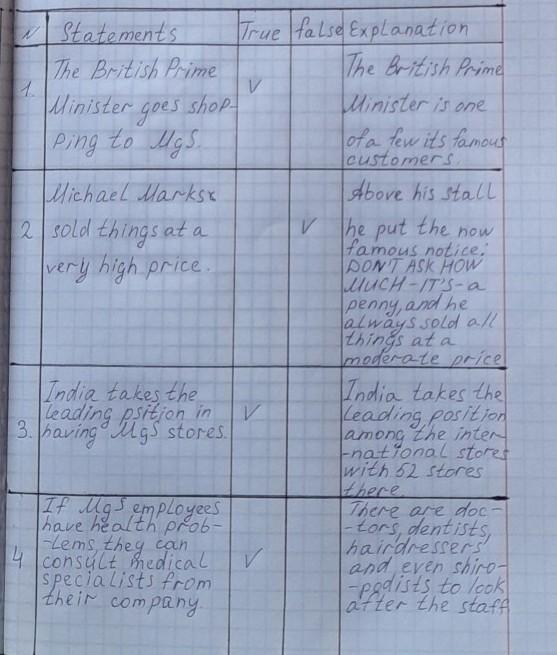 N Statements True false Explanation
1. The British Prime Minister goes shop-
ping to MgS.
V
The British Prime
Minister is one
of a few its famous
customers.
2 Michael Marks
sold things at a
very high price.
V
Above his stall
he put the now
famous notice:
DON'T ASK HOW
MUCH-IT'S-a
penny, and he
always sold all
things at a
moderate price
3. India takes the
leading psition in
having MgS stores.
V
India takes the
leading position
among the inter-
-national stores
with 52 stores
there.
4 If MgS employees
have health prob-
-lems, they can
consult medical
specialists from
their company.
V
There are doc-
-tors, dentists,
hairdressers
and even shiro-
-podists to look
after the staff